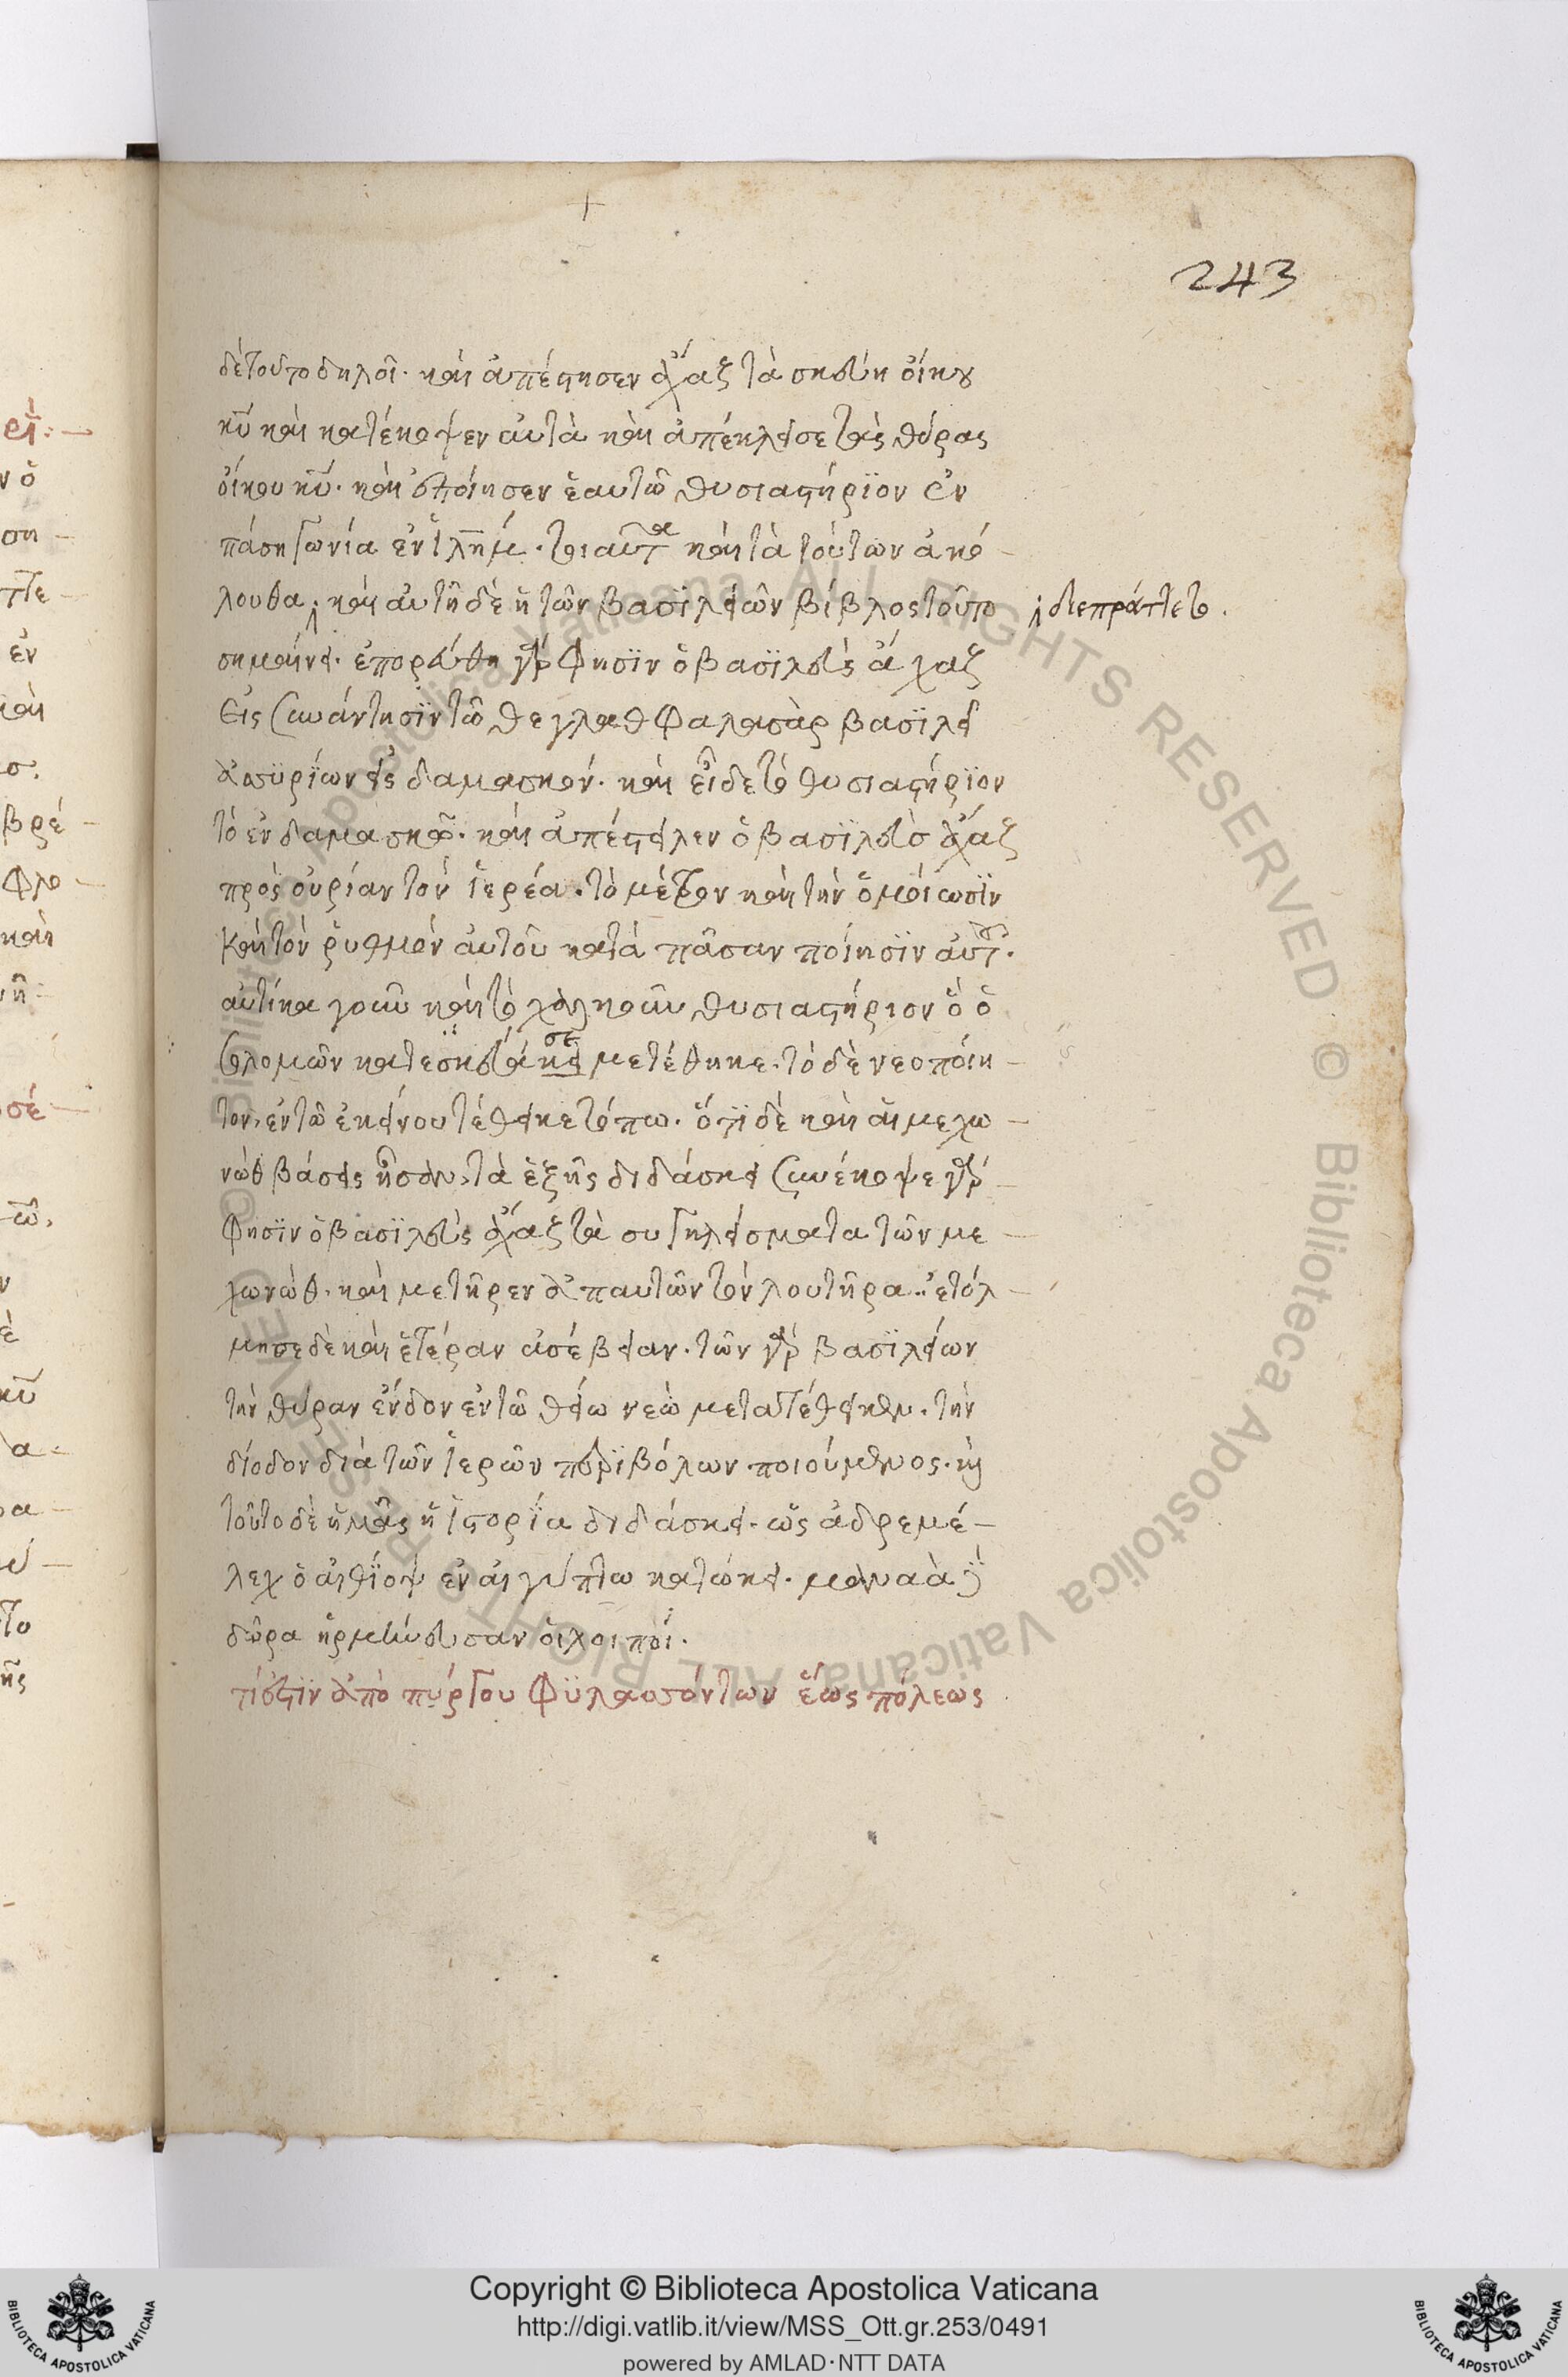 243
δὲ τοῦτο δηλοῖ. καὶ ἀπέστησεν ἄχαζ τὰ σκεύη οἴκου
κ̅υ̅ καὶ κατέκοψεν αὐτὰ καὶ ἀπέκλεισε τὰς θύρας
οἴκου κ̅υ̅. καὶ ἐποίησεν ἑαυτῶ θυσιαστήρϊον ἐν
πάση γωνία ἐν ἱ̅λ̅η̅μ̅. τοιαῦτα καὶ τὰ τούτων ἀκό-
λουθα. καὶ αὐτὴ δὲ ἡ τῶν βασϊλειῶν βίβλος τοῦτο
διεπράττετο.
σημαίνει. ἐπορεύθη γάρ φησϊν ὁ βασϊλεὺς ἄχαζ
εἰς συνάντησϊν τῶ θεγλαθφαλασὰρ βασϊλεῖ
ἀσσϋρίων εἰς δαμασκόν. καὶ εἶδε τὸ θυσιαστήρϊον
τὸ ἐν δαμασκῶ. καὶ ἀπέστειλεν ὁ βασϊλεὺσ ἄχαζ
πρὸς οὐρίαν τὸν ἱερέα. τὸ μέτρον καὶ τὴν ὁμοίωσϊν
καὶ τὸν ῥυθμὸν αὐτοῦ κατὰ πᾶσαν ποίησϊν αὐτοῦ.
αὐτίκα γοῦν καὶ τὸ χαλκοῦν θυσιαστήριον ὃ ὁ
σολομῶν κατεσκεύακει σε μετέθηκε. τὸ δὲ νεοποίη-
τον, ἐν τῶ ἐκείνου τέθεικε τόπω. ὅτϊ δὲ καὶ αἱ μεχω-
νὼθ βάσεις ἦσαν, τὰ ἑξῆς διδάσκει συνέκοψε γάρ
φησϊν ὁ βασϊλεὺς ἄχαζ τὰ συγκλείσματα τῶν με-
χωνὼθ. καὶ μετῆρεν ἀπ αυτῶν τὸν λουτῆρα. ἐτόλ-
μησε δὲ καὶ ἑτέραν ἀσέβειαν. τῶν γὰρ βασϊλείων
τὴν θύραν ἔνδον ἐν τῶ θείω νεὼ μετατέθεικεν. τὴν
δίοδον διὰ τῶν ἱερῶν περϊβόλων ποιούμενος. καὶ
τοῦτο δὲ ἡμᾶς ἡ ἱστορΐα διδάσκει. ὡς ἀδρεμέ-
λεχ ὁ αἰθΐοψ ἐν αἰγύπτω κατώκει. μαναὰ
δῶρα ἡρμήνευσαν οἱ λοιποί.
τίἐστϊν ἀπὸ πύργου φϋλασσόντων ἕως πόλεως
Copyright © Biblioteca Apostolica Vaticana
http://digi.vatlib.it/view/MSS_Ott.gr.253/0491
powered by AMLAD·NTT DATA